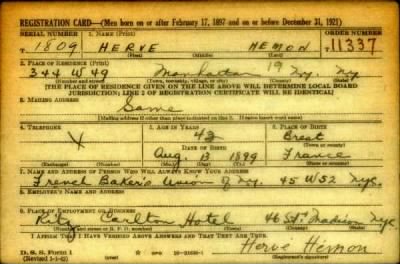 REGISTRATION CARD—(Men born on or after February 17, 1897 and on or before December 31, 1921)
SERIAL NUMBER 1. NAME (Print) ORDER NUMBER
1809 HERVE HEMON 11337
2. PLACE OF RESIDENCE (Print)
344 W 49 Manhattan 19 Ny. Ny
(Number and street) (Town, township, village, or city) (County) (State)
[THE PLACE OF RESIDENCE GIVEN ON THE LINE ABOVE WILL DETERMINE LOCAL BOARD
JURISDICTION; LINE 2 OF REGISTRATION CERTIFICATE WILL BE IDENTICAL]
3. MAILING ADDRESS
Same
[Mailing address if other than place indicated on line 2. If same insert word same]
4. TELEPHONE 5. AGE IN YEARS 6. PLACE OF BIRTH
X 42 Brest
DATE OF BIRTH (Town or county)
Aug. 13 1899 France
(Exchange) (Number) (Mo.) (Day) (Yr.) (State or country)
7. NAME AND ADDRESS OF PERSON WHO WILL ALWAYS KNOW YOUR ADDRESS
French Baker's Union of Ny. 45 W 52 Nyc.
8. EMPLOYER'S NAME AND ADDRESS
Ritz Carlton Hotel
9. PLACE OF EMPLOYMENT OR BUSINESS
46 St. Madison Nyc
(Number and street or R. F. D. number) (Town) (County) (State)
I AFFIRM THAT I HAVE VERIFIED ABOVE ANSWERS AND THAT THEY ARE TRUE.
D. S. S. Form 1
(Revised 1-1-42) (over) Herve Hemon
(Registrant's signature)